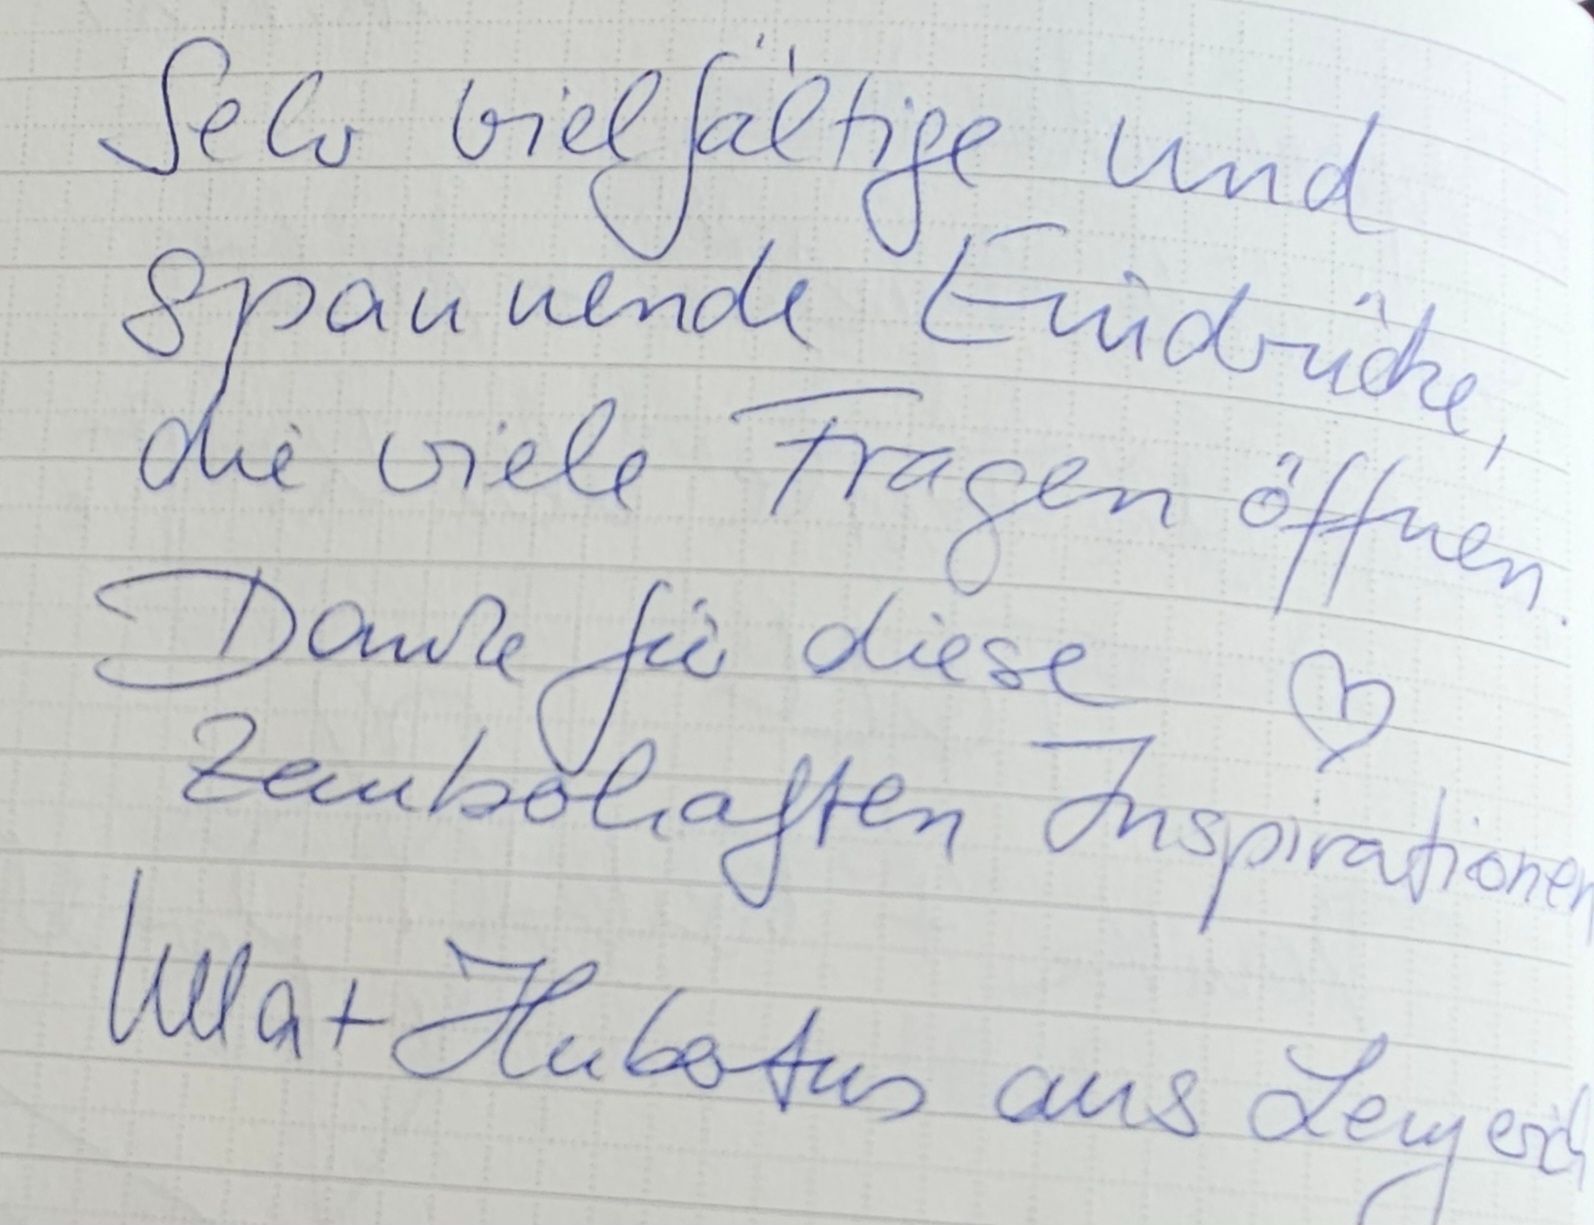 Sehr vielfältige und
spannende Eindrücke,
die viele Fragen öffnen.
Danke für diese ♡
zauberhaften Inspirationen
Ulla + Hubertus aus Lengerich